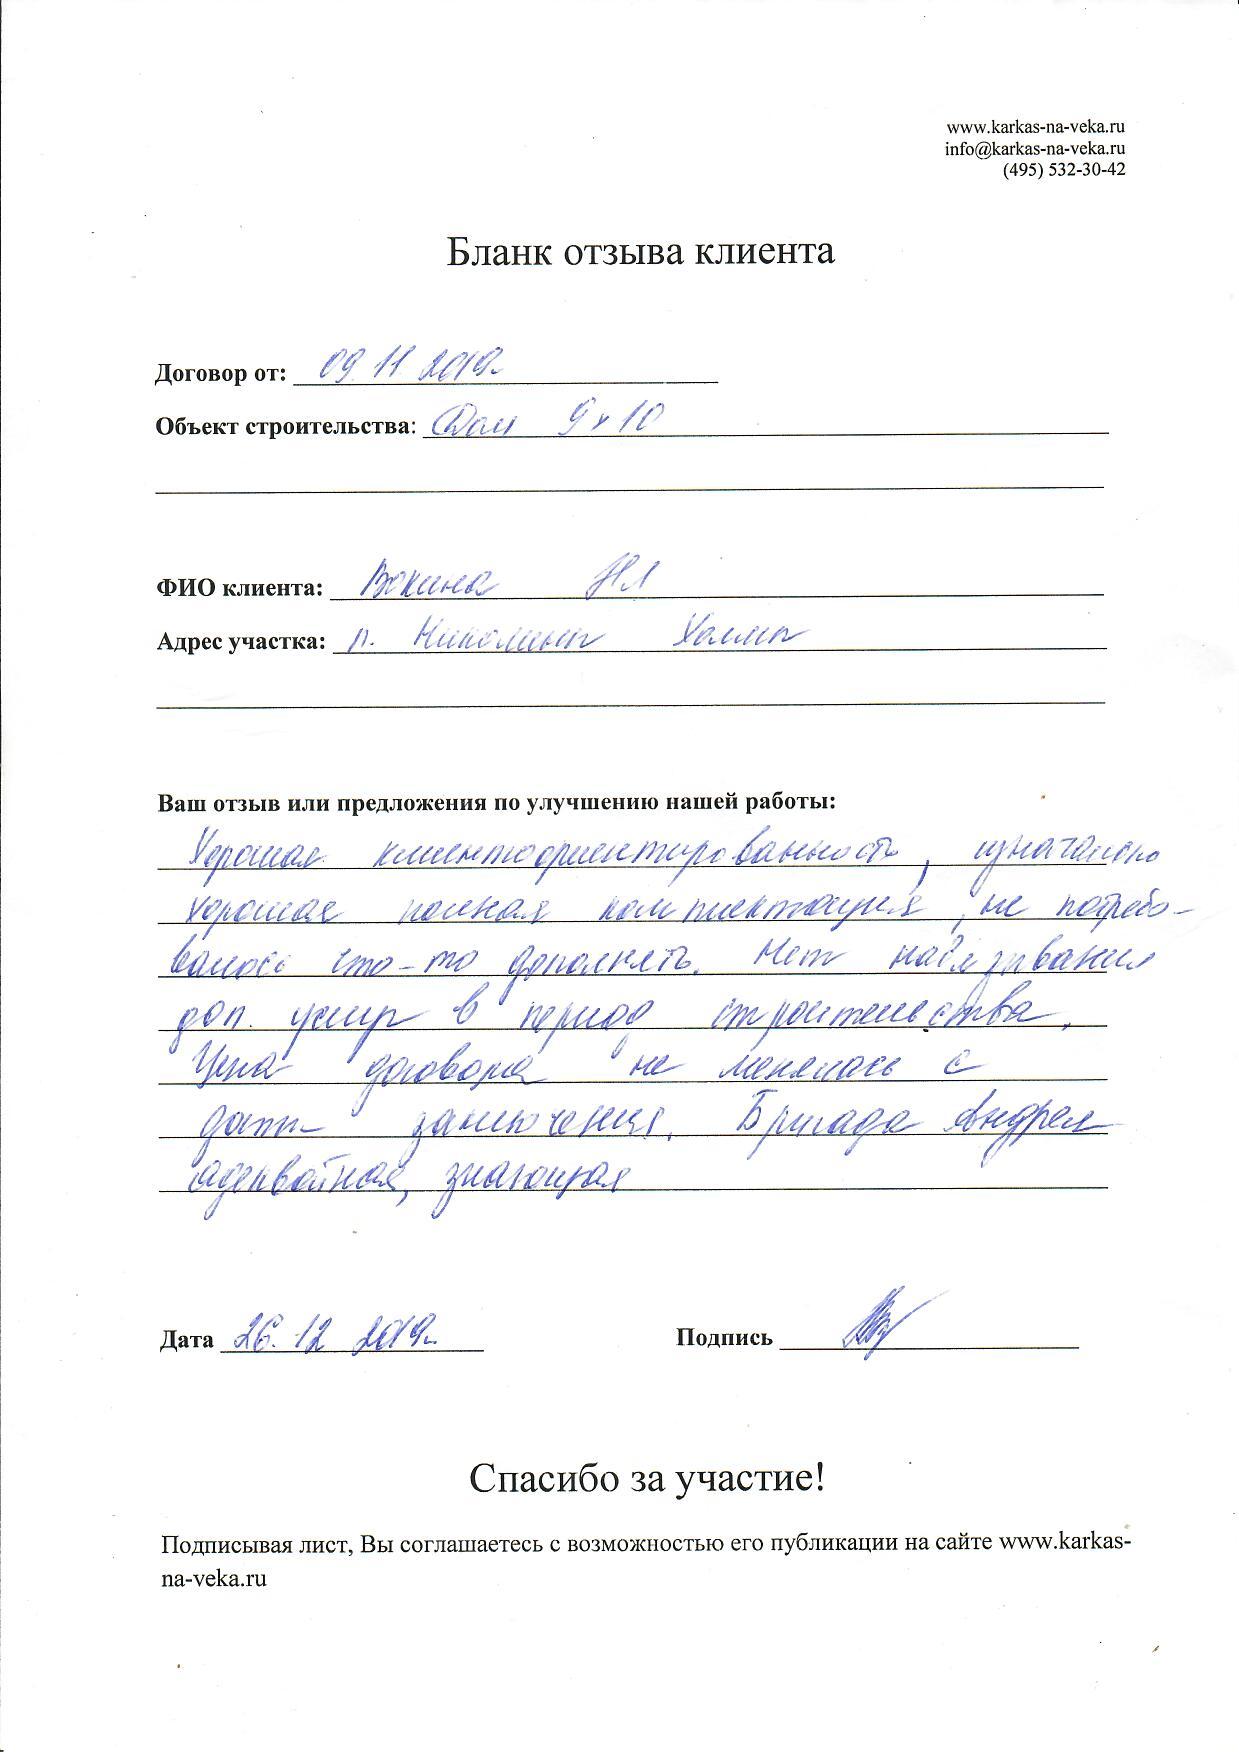 www.karkas-na-veka.ru
info@karkas-na-veka.ru
(495) 532-30-42
Бланк отзыва клиента
Договор от: 09.11 2019г.
Объект строительства: Дом 9х10
ФИО клиента: Вакина НЛ
Адрес участка: п. Николины Холмы
Ваш отзыв или предложения по улучшению нашей работы:
Хорошая клиентоориентированность, изначально
хорошая полная комплектация, не потребо-
валось что-то дополнять. Нет навязывания
доп. услуг в период строительства.
Цена договора не менялась с
даты заключения. Бригада Андрея
адекватная, знающая
Дата 26.12 2019г. Подпись
Спасибо за участие!
Подписывая лист, Вы соглашаетесь с возможностью его публикации на сайте www.karkas-
na-veka.ru